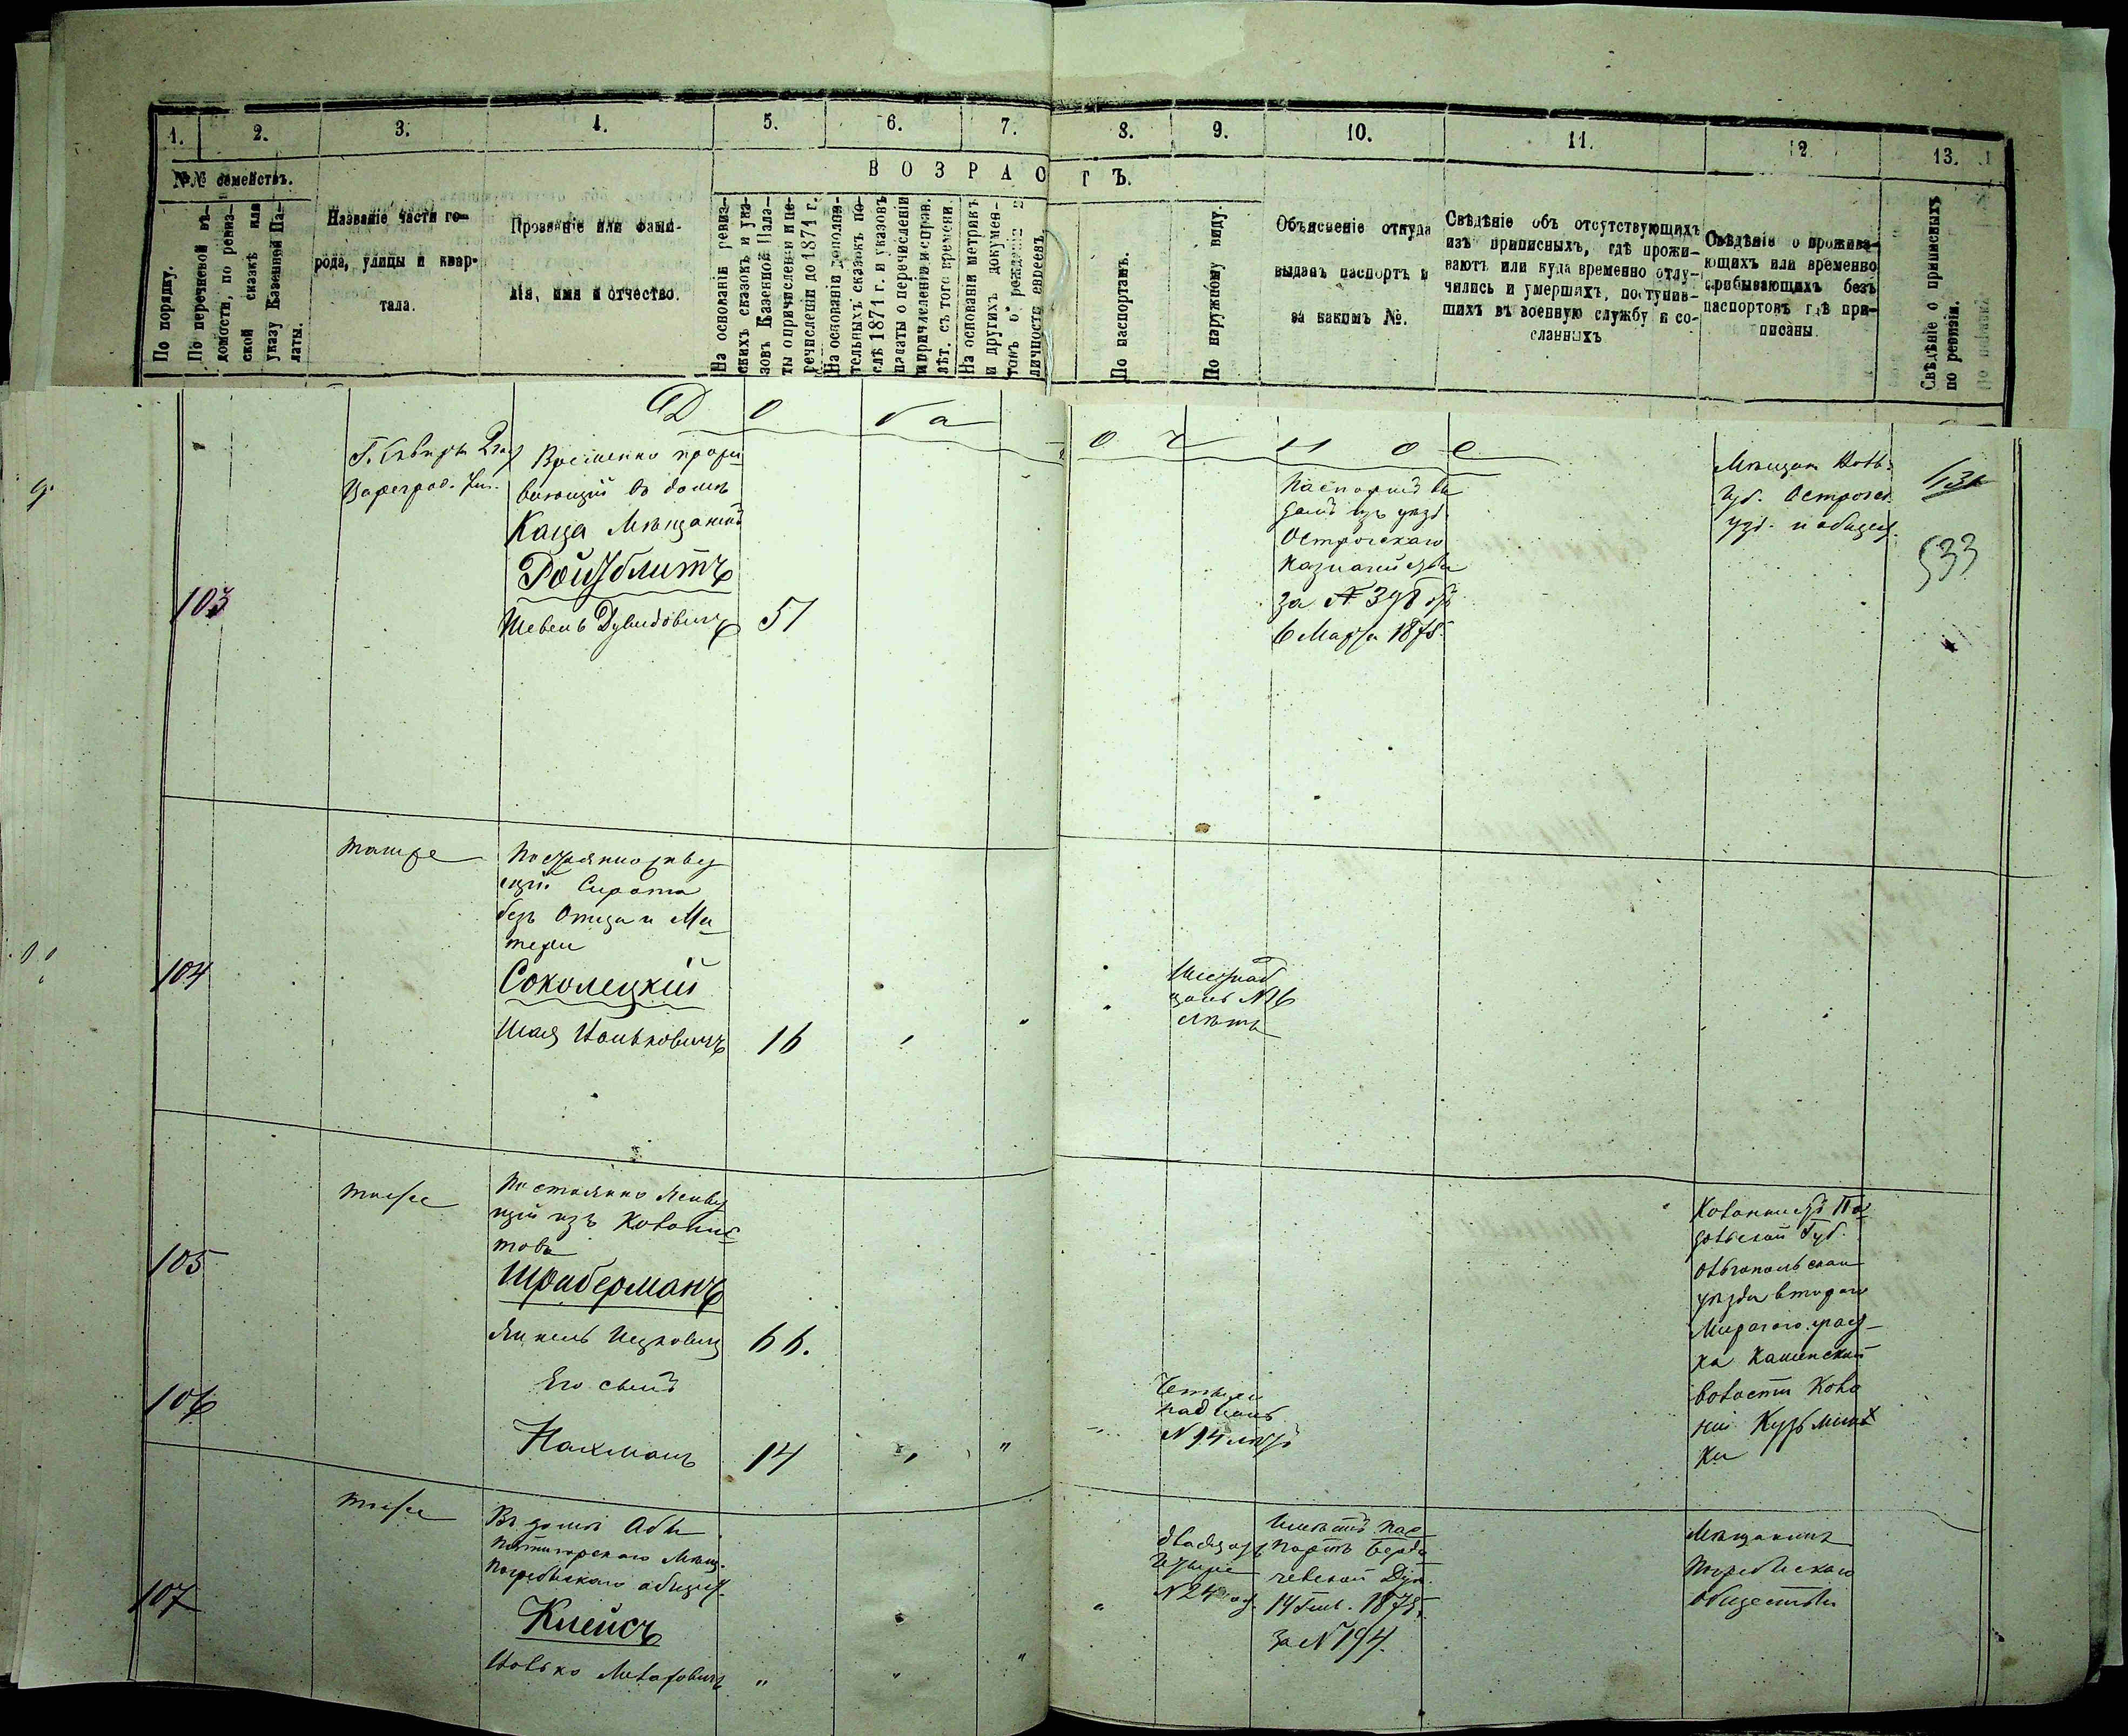 1. 2. 3. 4. 5. 6. 7. 8. 9. 10. 11. 12 13.
№№ семействъ.
ВОЗРАСТЪ.
По порядку.
По перечневой вѣ-
домости, по ревиз-
ской сказкѣ или
указу Казенной Па-
латы.
Названіе части го-
рода, улицы и квар-
тала.
Прозваніе или фами-
лія, имя и отчество.
На основаніи ревиз-
скихъ сказокъ и ука-
зовъ Казенной Пала-
ты о причисленіи и пе-
речисленіи до 1871 г.
На основаніи дополни-
тельныхъ сказокъ по-
слѣ 1871 г. и указовъ
палаты о перечисленіи
и причисленіи и справ.
лѣт. съ того времени.
На основаніи метрикъ
и другихъ докумен-
товъ о рожденіи и
личности евреевъ.
По паспортамъ.
По наружному виду.
Объясненіе откуда
выданъ паспортъ и
за какимъ №.
Свѣдѣніе объ отсутствующихъ
изъ приписныхъ, гдѣ прожи-
ваютъ или куда временно отлу-
чились и умершихъ, поступив-
шихъ въ военную службу и со-
сланныхъ
Свѣдѣніе о прожива-
ющихъ или временно
прибывающихъ безъ
паспортовъ гдѣ при-
писаны.
Свѣдѣніе о приписныхъ
по ревизіи.
Д о б а в о ч н о е
103
Временно прожи
вающій въ домѣ
Каца Мѣщанинъ
Ройзблитъ
Шевель Дувидовичъ
51
Паспортъ вы
данъ изъ уѣзд.
Острогскаго
Казначейства
за № 398 отъ
6 Марта 1875.
Мѣщан. Волы.
Губ. Острогс.
уѣз. и общес.
533
104
тоже
Постоянно живу
щій Сирота
безъ Отца и Ма
тери
Соколецкій
Шая Іоньковичъ
16
Шестнад
цать №16
лѣтъ
105
тоже
Постоянно живу
щій изъ Колонис
товъ
Шрайберманъ
Янкель Ицковичъ
66.
Колонистъ По
дольской Губ.
Ольгопольскаго
уѣзда втораго
Мироваго участ-
ка Каменской
волости Коло
ніи Кузьминъ
ки
106
Его сынъ
Нахманъ
14
Четыр
надцать
№ 14 лѣтъ
107
тоже
Въ домѣ Абы
Пятигорскаго Мѣщ.
Погребискаго общест.
Клейсъ
Іолько Лейзоровичъ
двадцать
четыре
№ 24 год.
Имѣетъ пас
портъ Берди
чевской Дум.
14 Янв. 1875.
за № 194.
Мѣщанинъ
Погребискаго
Общества